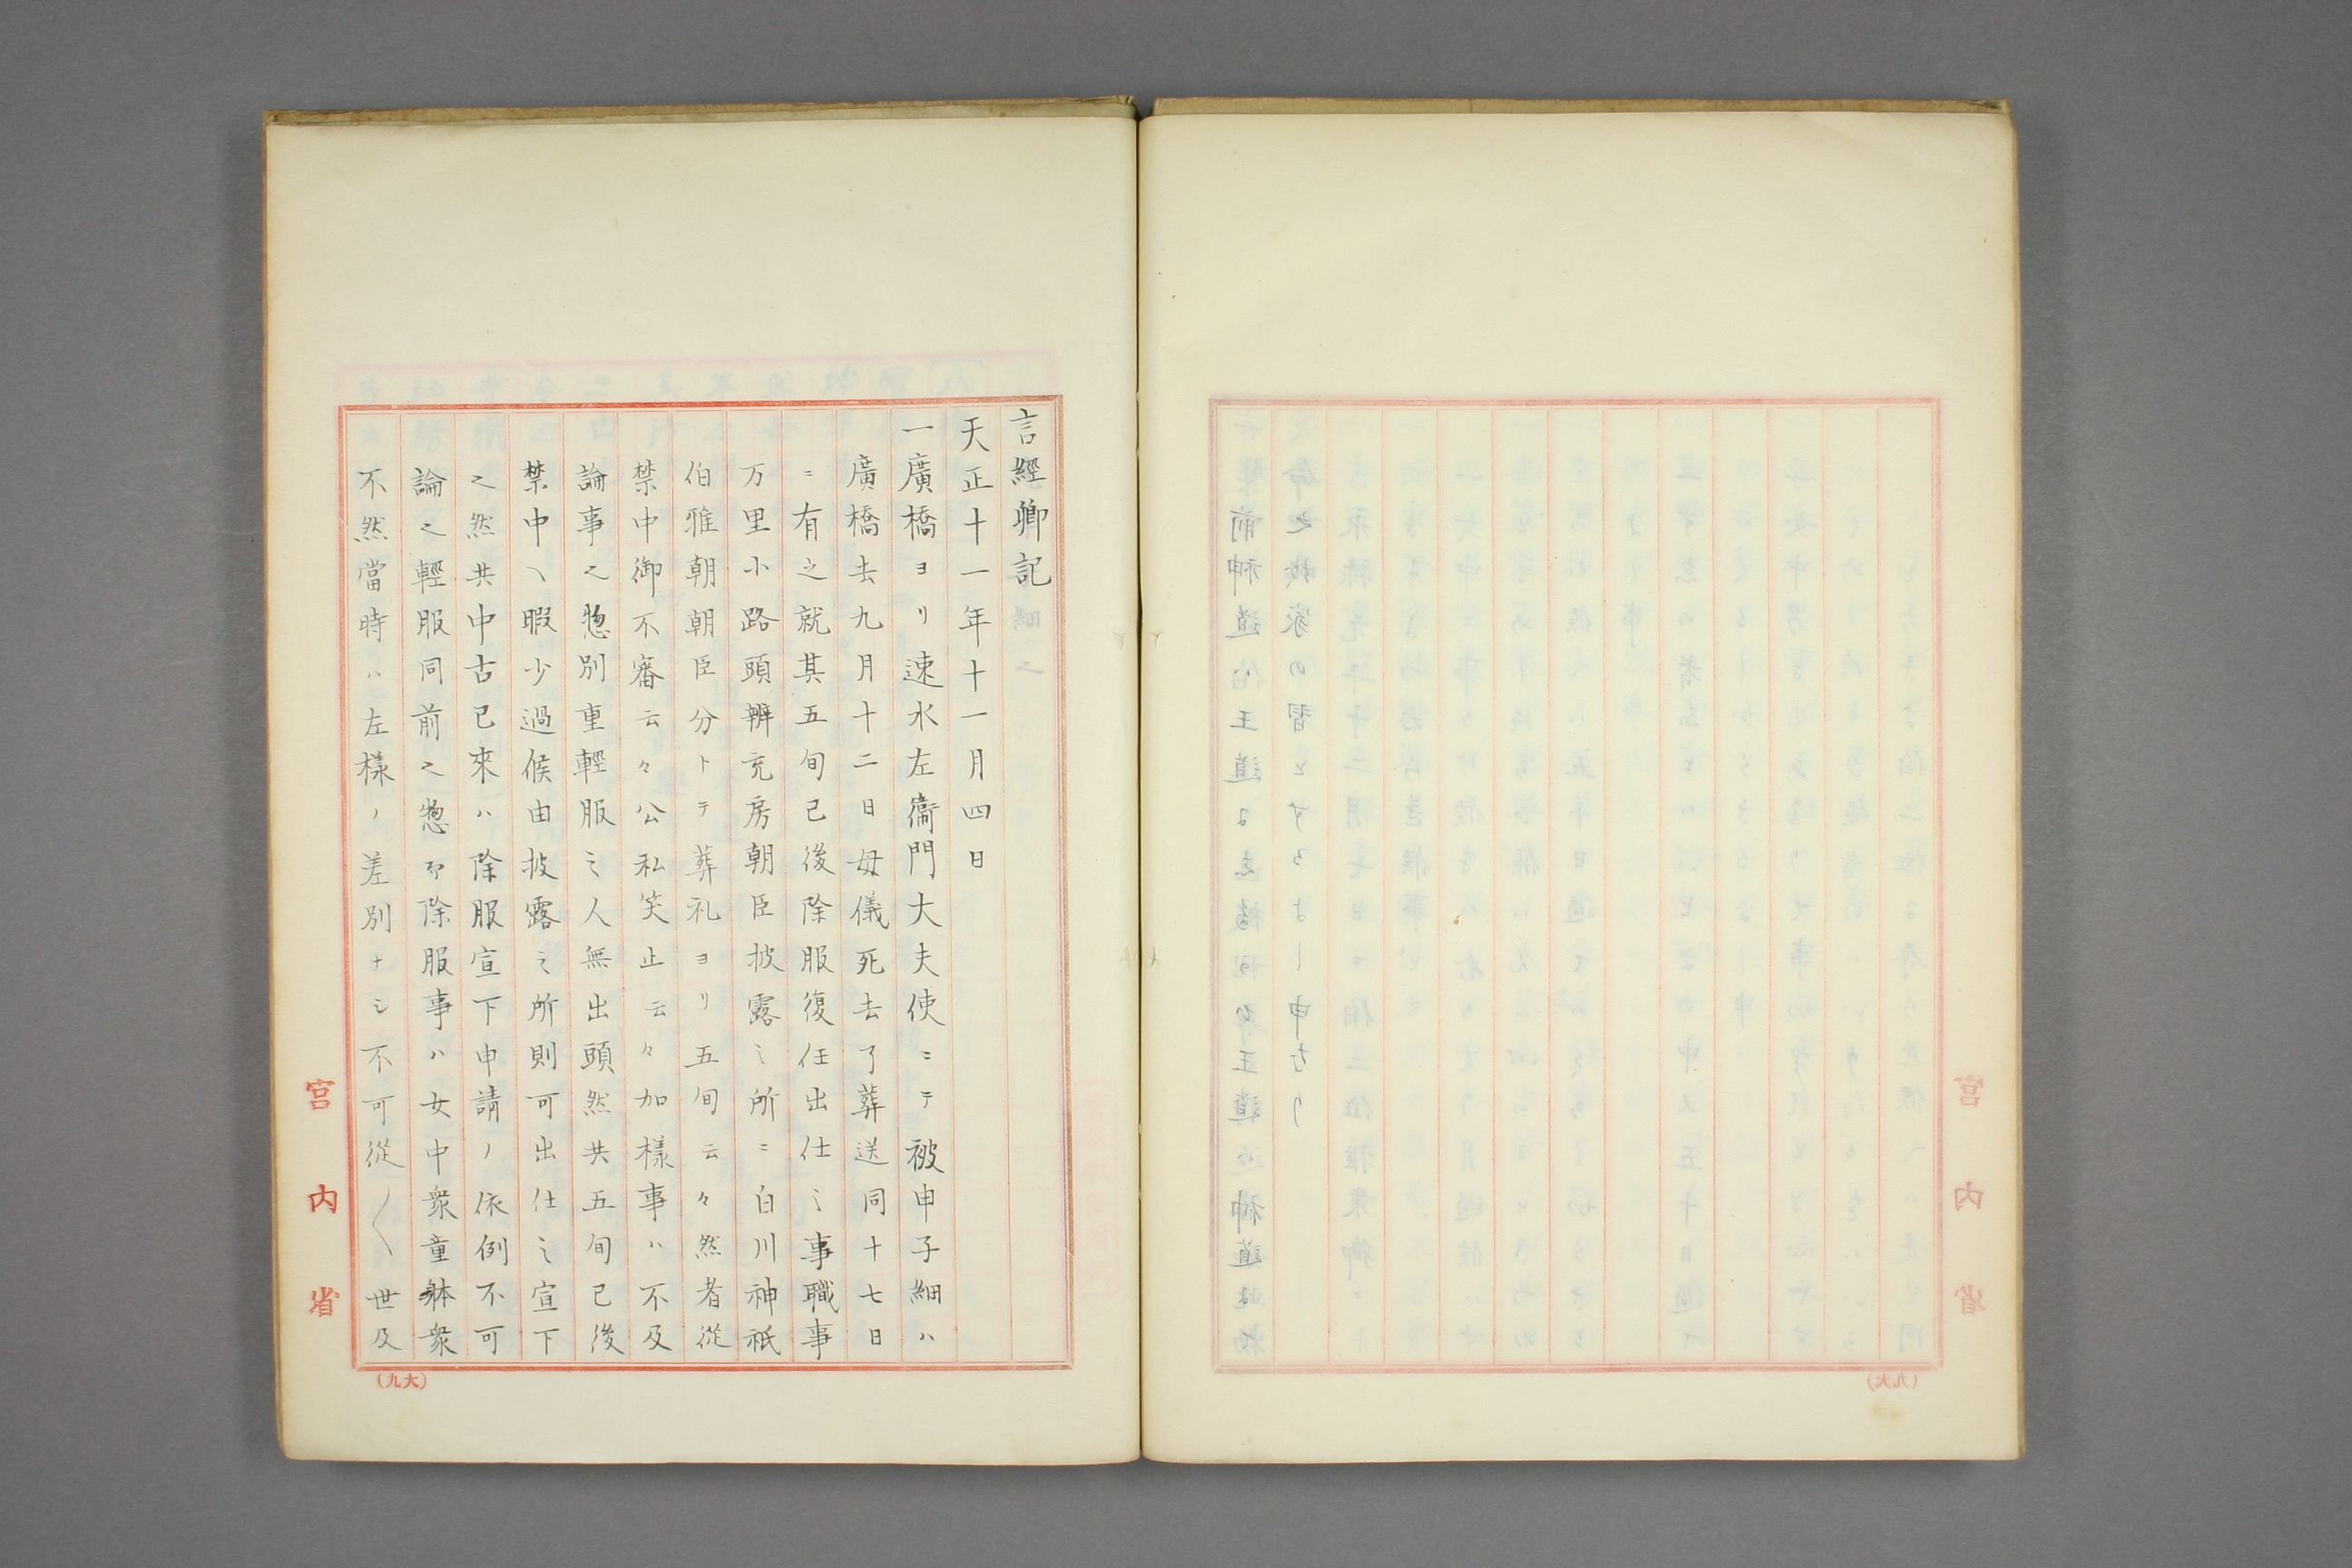 言經卿記
天正十一年十一月四日
一廣橋ヨリ速水左衞門大夫使ニテ被申子細ハ
廣橋去九月十二日母儀死去了葬送同十七日
ニ有之就其五旬已後除服復任出仕之事職事
万里小路頭辨充房朝臣披露之所ニ白川神祇
伯雅朝朝臣分トテ葬礼ヨリ五旬云々然者従
禁中御不審云々公私笑止云々加様事ハ不及
論事之惣別重輕服之人無出頭然共五旬已後
禁中ヘ暇少過候由披露之所則可出仕之宣下
之然共中古已來ハ除服宣下申請ノ依例不可
論之輕服同前之惣而除服事ハ女中衆童躰衆
不然當時ハ左様ノ差別ナシ不可從〱世及
宮内省
(大九)